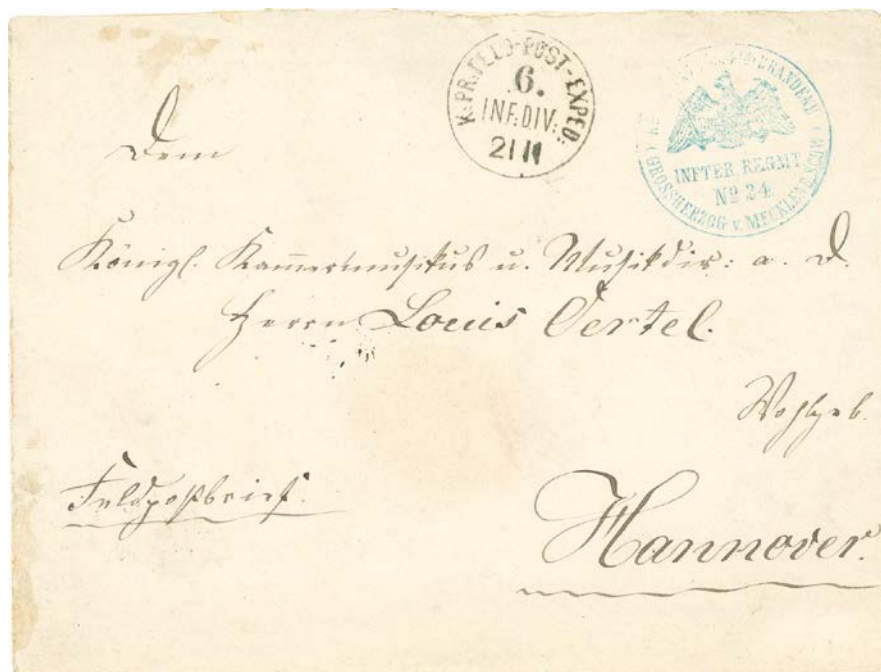 K. PR. FELD-POST-EXPED:
6.
INF: DIV:
21 11
BRANDENB
INFTER. REGMT
No 24.
GROSSHERZOG v. MECKLENB. SCHW
Dem
Königl. Kammermusikus u. Musikdir: a. D.
Herrn Louis Oertel.
Wohlgeb.
Feldpostbrief.
Hannover.